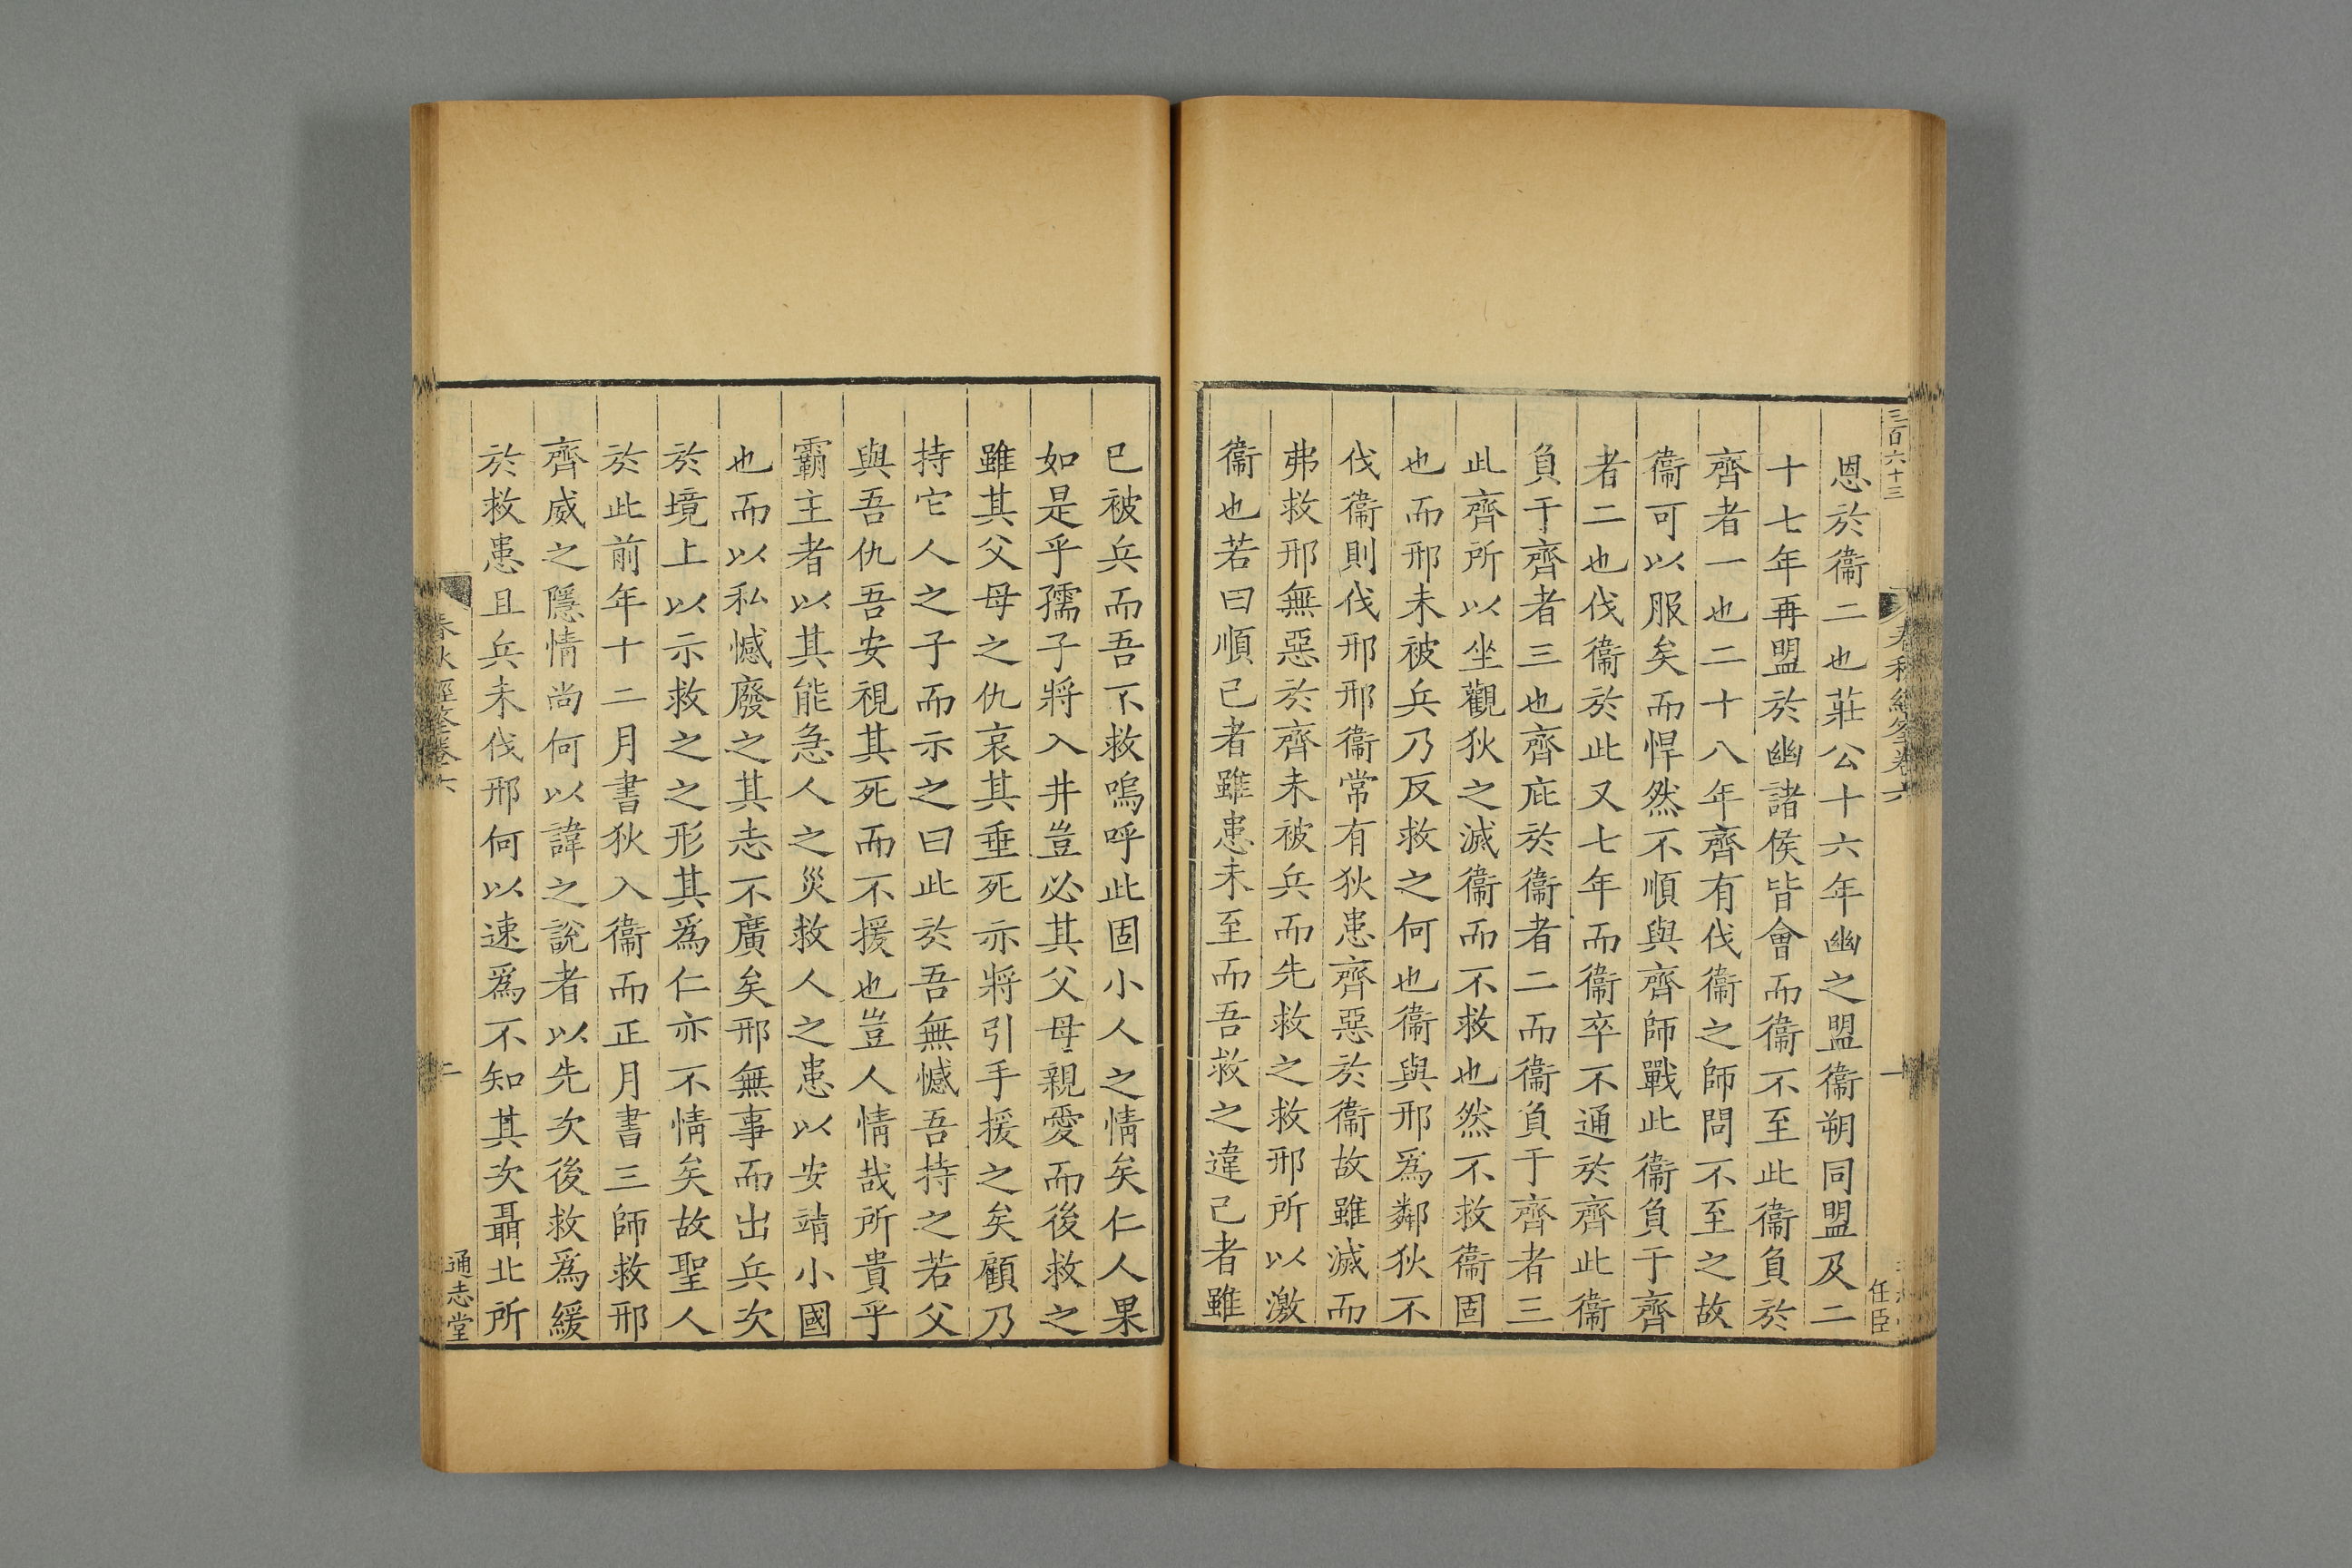 三百六十三
恩於衞二也莊公十六年幽之盟衞朔同盟及二
十七年再盟於幽諸侯皆會而衞不至此衞負於
齊者一也二十八年齊有伐衞之師問不至之故
衞可以服矣而悍然不順與齊師戰此衞負于齊
者二也伐衞於此又七年而衞卒不通於齊此衞
負于齊者三也齊庇於衞者二而衞負于齊者三
此齊所以坐觀狄之滅衞而不救也然不救衞固
也而邢未被兵乃反救之何也衞與邢爲鄰狄不
伐衞則伐邢邢衞常有狄患齊惡於衞故雖滅而
弗救邢無惡於齊未被兵而先救之救邢所以激
衞也若曰順己者雖患未至而吾救之違己者雖
任臣
已被兵而吾不救嗚呼此固小人之情矣仁人果
如是乎孺子將入井豈必其父母親愛而後救之
雖其父母之仇哀其垂死亦將引手援之矣顧乃
持它人之子而示之曰此於吾無憾吾持之若父
與吾仇吾安視其死而不援也豈人情哉所貴乎
霸主者以其能急人之災救人之患以安靖小國
也而以私憾廢之其志不廣矣邢無事而出兵次
於境上以示救之之形其爲仁亦不情矣故聖人
於此前年十二月書狄入衞而正月書三師救邢
齊威之隱情尚何以諱之說者以先次後救爲緩
於救患且兵未伐邢何以速爲不知其次聶北所
春秋經筌卷六
二
通志堂